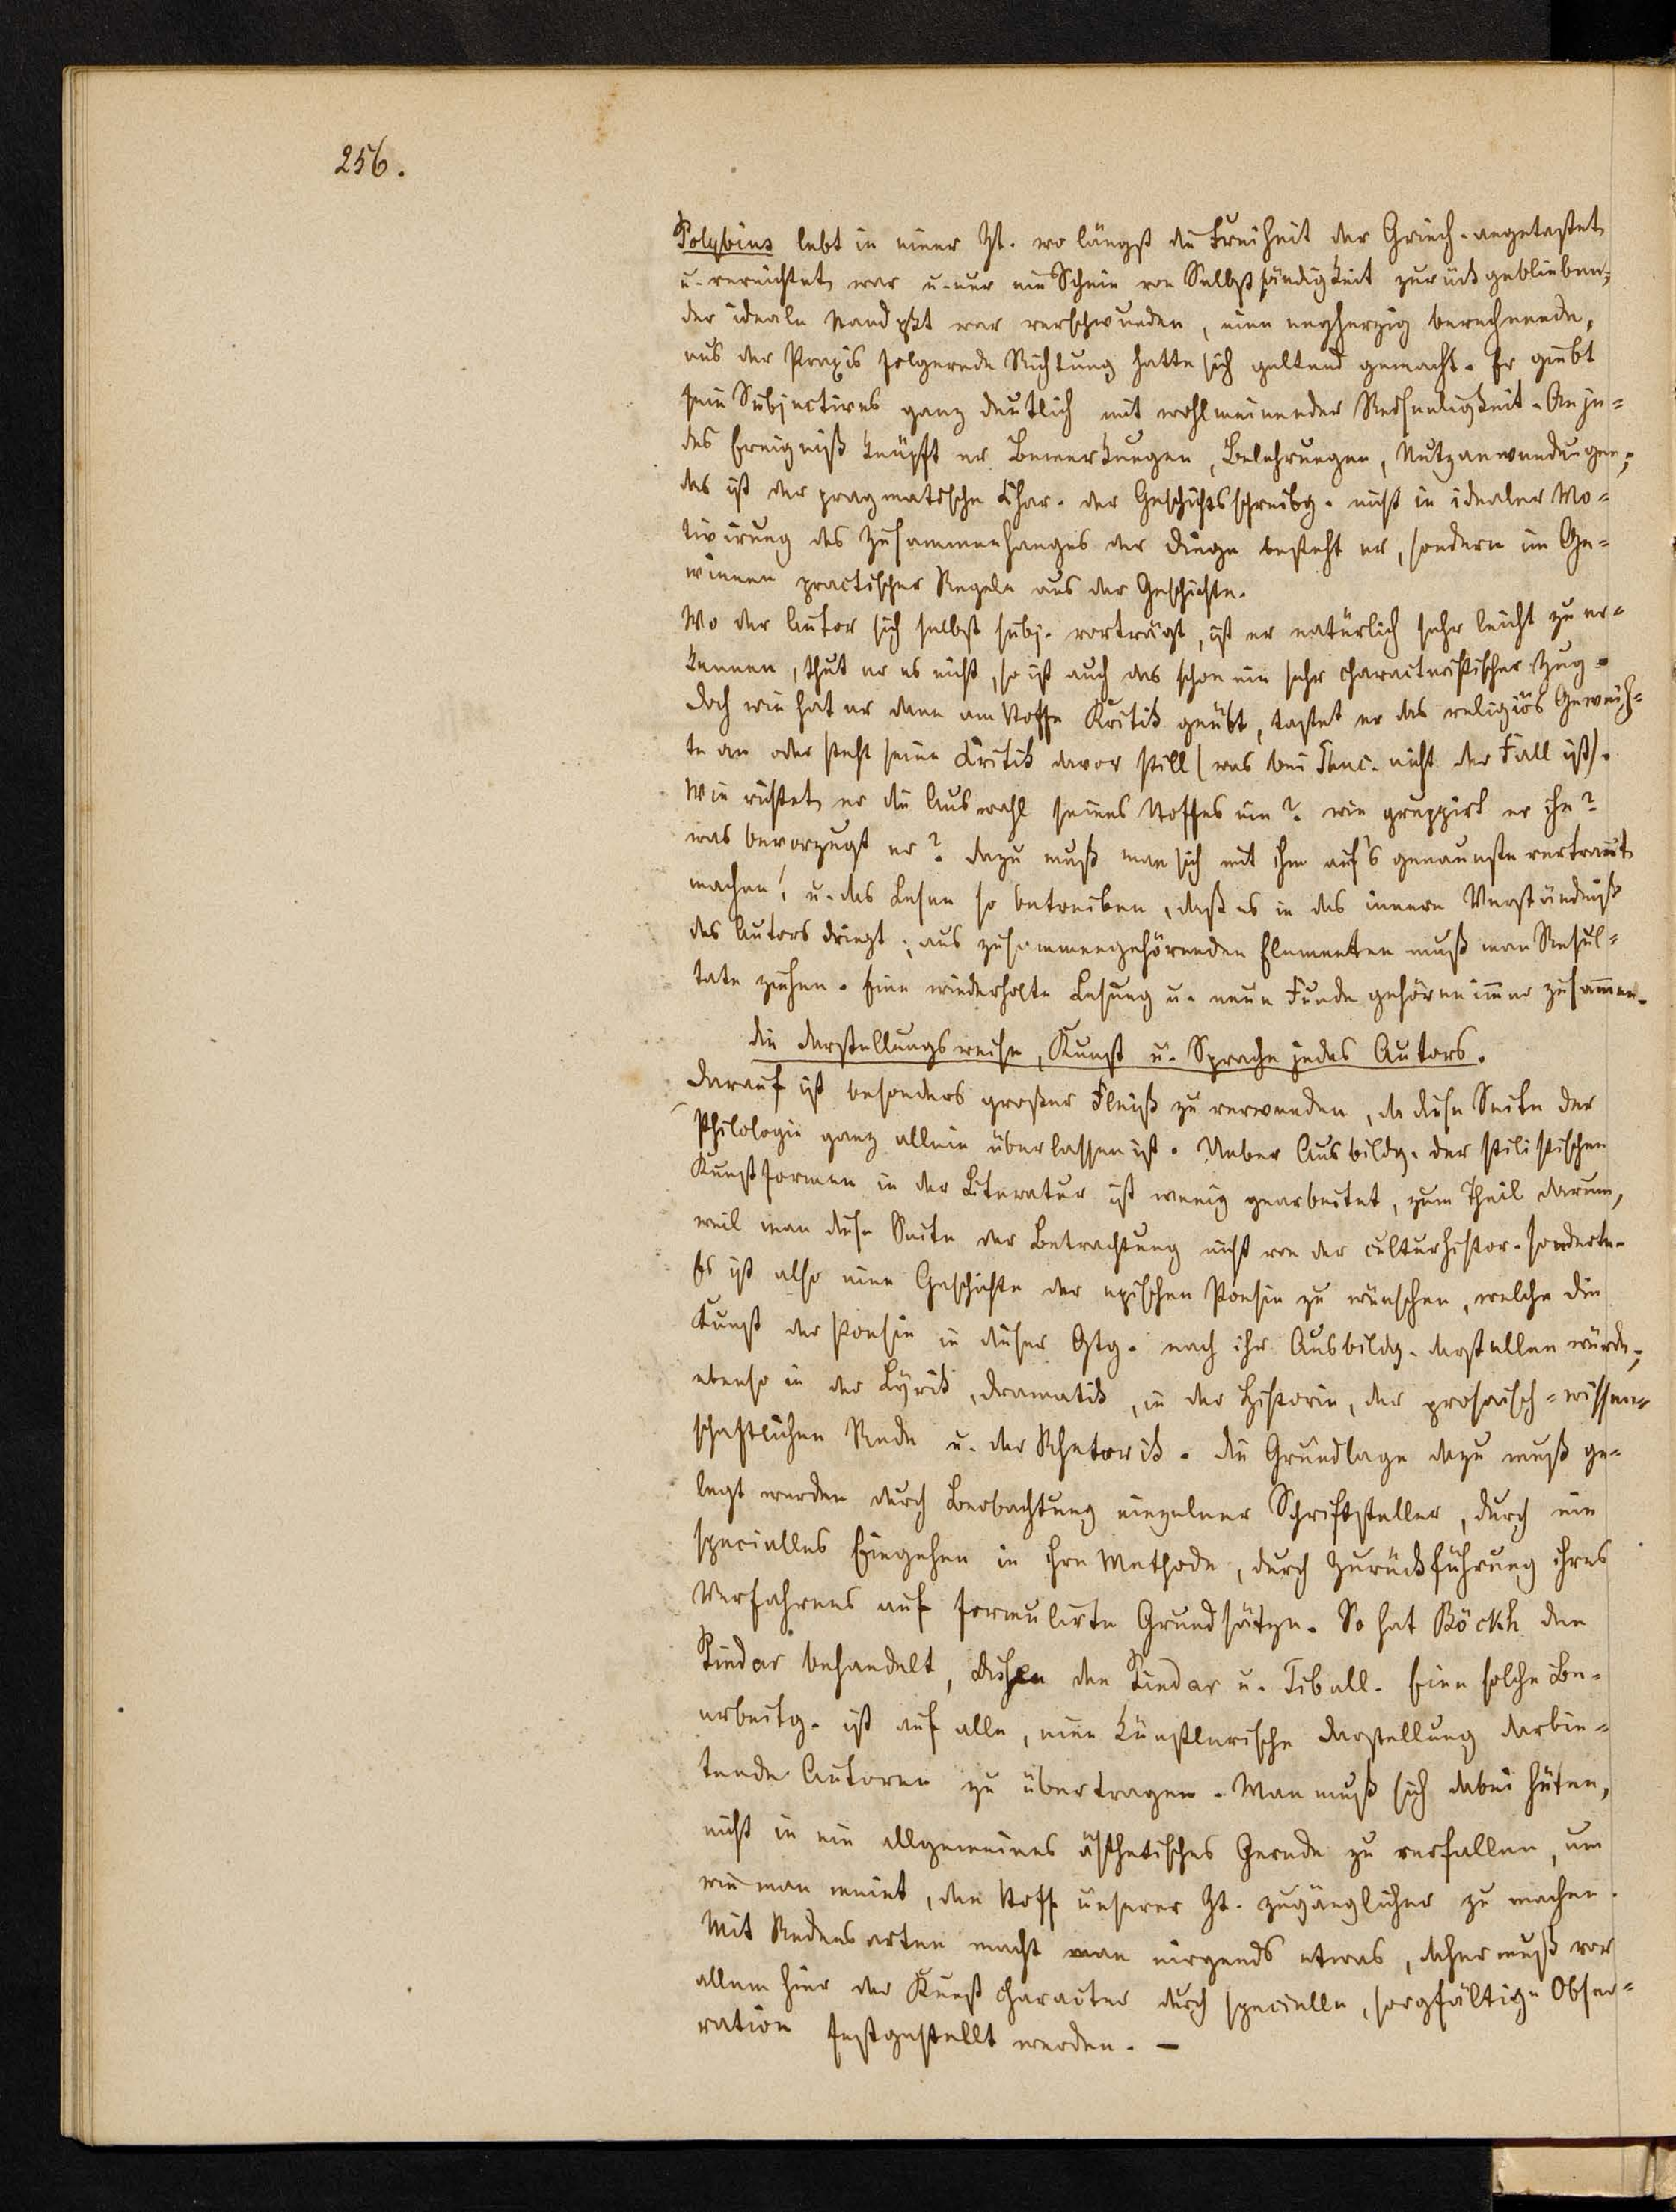 256.
Polybius lebt in einer Zt. wo längst die Freiheit der Griech. angetastet
u. vernichtet war u. nur ein Schein von Selbstständigkeit zurückgeblieben;
der ideale Standpkt war verschwunden, eine engherzig berechnende,
aus der Praxis folgernde Richtung hatte sich geltend gemacht. Er giebt
sein Subjectives ganz deutlich mit wohlmeinender Redseligkeit. An je=
des Ereigniß knüpft er Bemerkungen, Belehrungen, Nutzanwendungen;
das ist der pragmatische Char. der Geschichtsschreibg. nicht in idealer Mo=
tivirung des Zusammenhanges der Dinge besteht er, sondern im Ge=
winnen practischer Regeln aus der Geschichte.
Wo der Autor sich selbst subj. vorträgt, ist er natürlich sehr leicht zu er=
kennen, thut er es nicht, so ist auch das schon ein sehr characteristischer Zug.
Doch wie hat er dann am Stoffe Kritik geübt, tastet er das religiös Geweih=
te an oder steht seine Kritik davor still (was bei Thuc. nicht der Fall ist).
Wie richtet er die Auswahl seines Stoffes ein? wie gruppirt er ihn?
was bevorzugt er? dazu muß man sich mit ihm auf's genaueste vertraut
machen! u. das Lesen so betreiben, daß es in das innere Verständniß
des Autors dringt; aus zusammengehörenden Elementen muß man Resul=
tate ziehen. Eine wiederholte Lesung u. neue Funde gehören immer zusammen.
Die Darstellungsweise, Kunst u. Sprache jedes Autors.
Darauf ist besonders großer Fleiß zu verwenden, da diese Seite der
Philologie ganz allein überlassen ist. Ueber Ausbildg. der stilistischen
Kunstformen in der Literatur ist wenig gearbeitet, zum Theil darum,
weil man diese Seite der Betrachtung nicht von der culturhistor. sonderte.
Es ist also eine Geschichte der epischen Poesie zu wünschen, welche die
Kunst der Poesie in dieser Gtg. nach ihr Ausbildg. darstellen würde;
ebenso in der Lyrik, Dramatik, in der Historie, der prosaisch=wissen=
schaftlichen Rede u. der Rhetorik. Die Grundlage dazu muß ge=
legt werden durch Beobachtung einzelner Schriftsteller, durch ein
specielles Eingehen in ihre Methode, durch Zurückführung ihres
Verfahrens auf formulirte Grundsätze. So hat Böckh den
Pindar behandelt, Dissen den Pindar u. Tibull. Eine solche Be=
arbeitg. ist auf alle, eine künstlerische Darstellung darbie=
tende Autoren zu übertragen. Man muß sich dabei hüten,
nicht in ein allgemeines ästhetisches Gerede zu verfallen, um
wie man meint, den Stoff unserer Zt. zugänglicher zu machen.
Mit Redensarten macht man nirgends etwas, daher muß vor
allem hier der Kunstcharacter durch specielle, sorgfältige Obser=
vation festgestellt werden. –